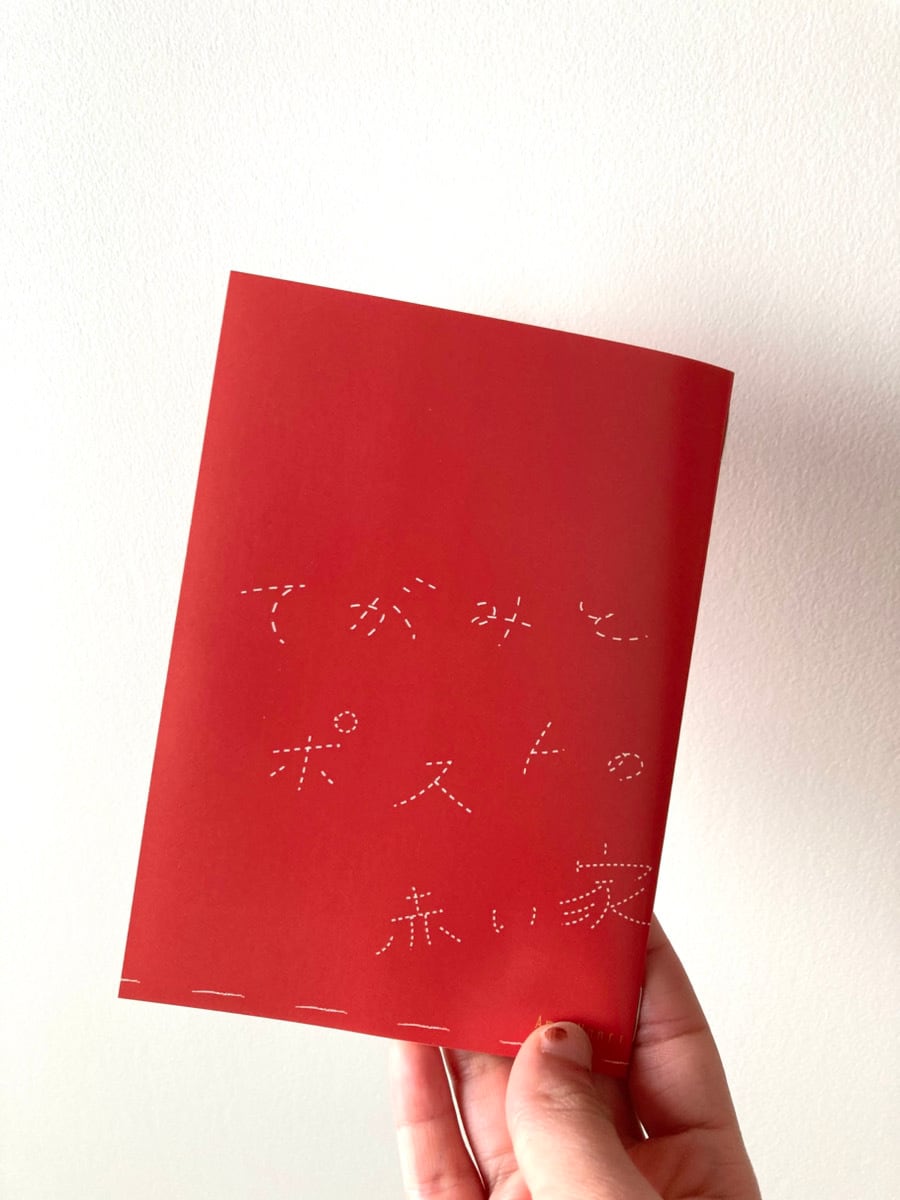 てがみと
ポストの
赤い家